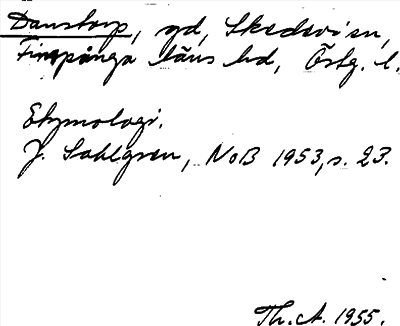 Danstorp, gd, Skedevi sn,
Finspånga läns hd, Östg. l.
Etymologi.
J. Sahlgren, NoB 1953, s. 23.
Th. A. 1955.